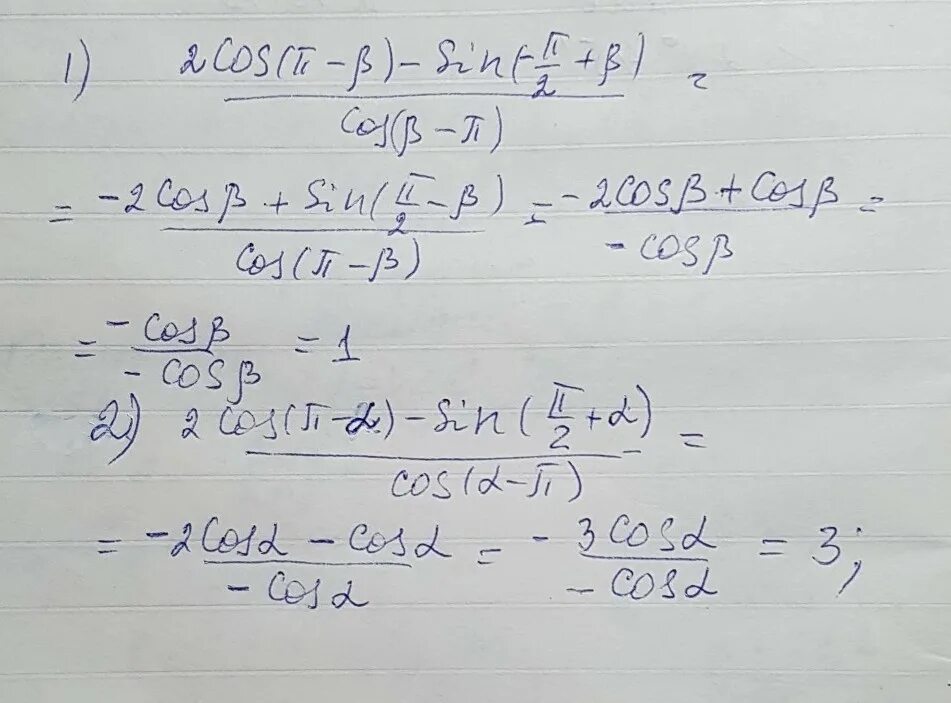 1) (2cos(π-β)-sin(-π/2+β))/(cos(β-π)) =
= (-2cosβ+sin(π/2-β))/(cos(π-β)) = (-2cosβ+cosβ)/(-cosβ) =
= (-cosβ)/(-cosβ) = 1
2) (2cos(π-α)-sin(π/2+α))/(cos(α-π)) =
= (-2cosα-cosα)/(-cosα) = (-3cosα)/(-cosα) = 3;